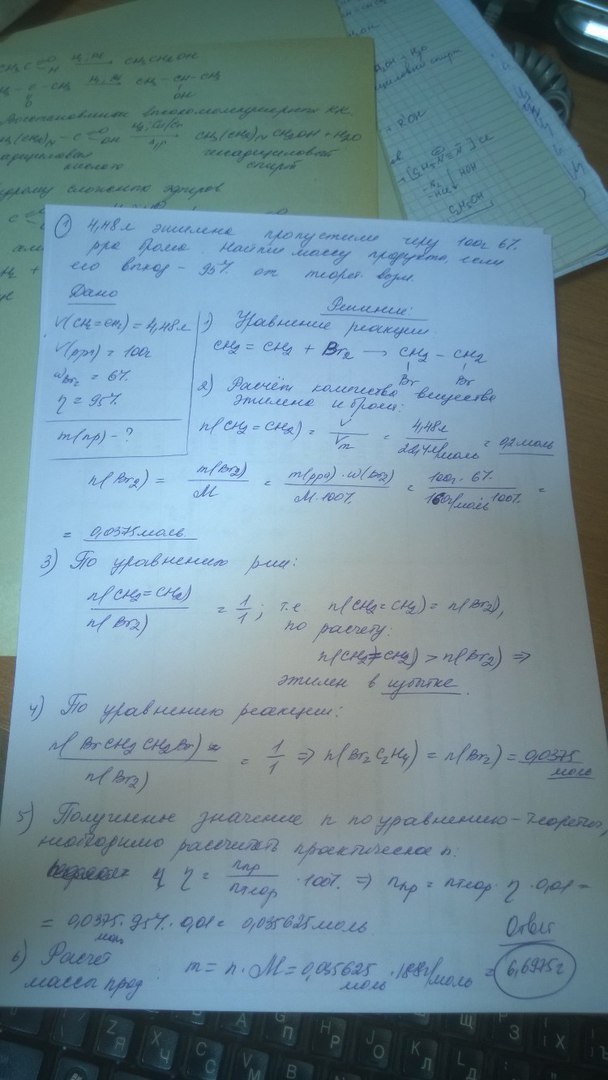 CH3 C =O H H2, Ni CH3 CH2OH
H2, Ni CH - CH - CH3
OH
CH3(CH2)N - C =O OH CH3(CH2)N CH2OH + H2O
кислота спирт
C2H5OH
① 4,48л этилена пропустили через 100г 6%
р-ра брома. Найти массу продукта, если
его выход - 95% от теорет. возм.
Дано
Решение:
V(CH2=CH2) = 4,48л
m(ppa) = 100г
ωBr2 = 6%
η = 95%
m(пр) - ?
1) Уравнение реакции
CH2 = CH2 + Br2 → CH2 - CH2
Br Br
2) Расчёт количества вещества
этилена и брома:
n(CH2=CH2) = V/Vm = 4,48л/22,4л/моль = 0,2 моль
n(Br2) = m(Br2)/M = m(ppa)·ω(Br2)/M·100% = 100г·6%/160г/моль 100% =
= 0,0375 моль
3) По уравнению р-ии:
n(CH2=CH2)/n(Br2) = 1/1; т.е n(CH2=CH2) = n(Br2),
по расчету:
n(CH2=CH2) > n(Br2) ⇒
этилен в избытке.
4) По уравнению реакции:
n(BrCH2CH2Br)/n(Br2) = 1/1 ⇒ n(Br2C2H4) = n(Br2) = 0,0375
моль
5) Полученное значение n по уравнению - теоретич,
необходимо рассчитать практическое n:
η = nпр/nтеор · 100% ⇒ nпр = nтеор · η · 0,01 =
= 0,0375 моль · 95% · 0,01 = 0,035625 моль
Ответ
6) Расчет
массы прод. m = n · M = 0,035625 моль · 188г/моль = 6,6975г